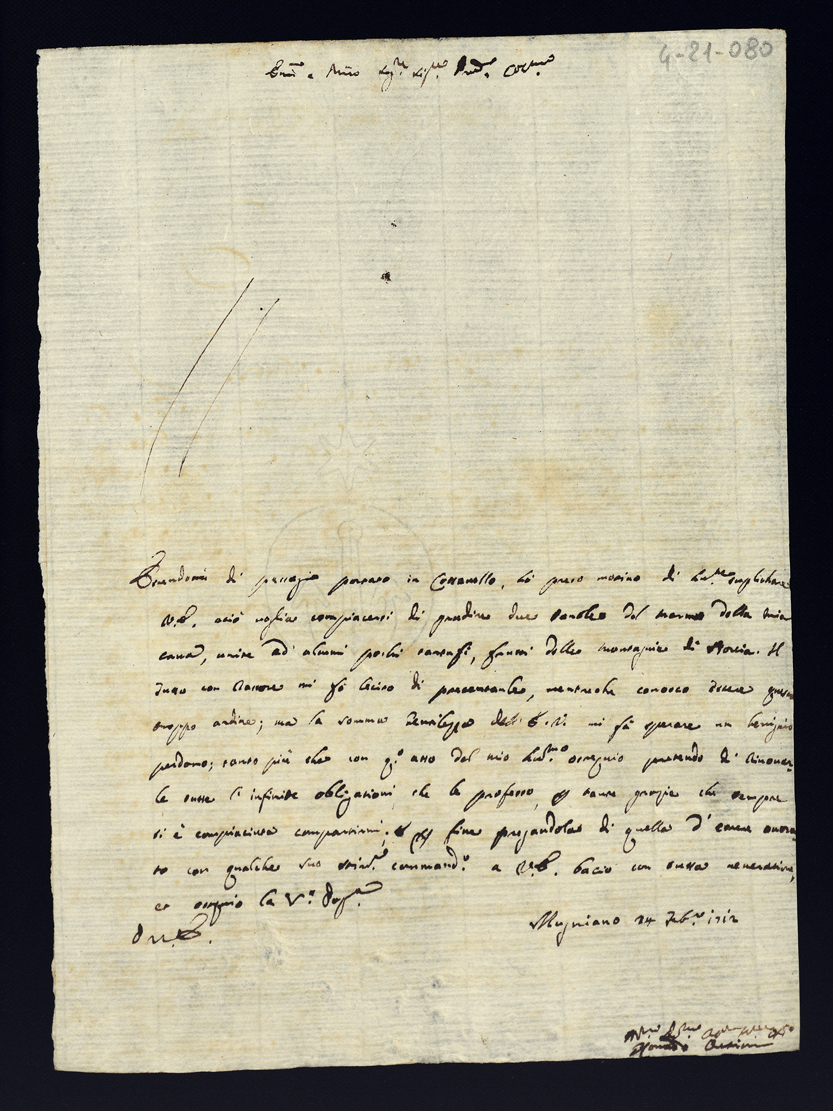 4-21-080
Em.mo e R.mo Sig.re Sig.re P.rone Col.mo
Essendomi di passagio portato in Cottanello, hò preso motivo di hu.te suplichare
V.E. aciò voglia compiacersi di gradire due tavole del marmo della mia
cava, unite ad' alcuni pochi tartufi, frutti delle montagnie di Norcia. Il
tutto con rossore mi fò lecito di presentarle, mentre che conosco essere
troppo ardire; ma la somma gentilezza dell' E.V. mi fà sperare un benignio
perdono; tanto più che con q.o atto del mio hu.mo ossequio pretendo di rinovar-
le tutte l' infinite obligationi che le professo, per tante grazie che sempre
si è compiaciuta compartirmi; e per fine pregandola di quella d' essere onora-
to con qualche suo stim.o commando a V.E. bacio con tutta veneratione,
et ossequio la V.te
D V.E.
Mugniano 24 Feb.ro 1712
Orsini